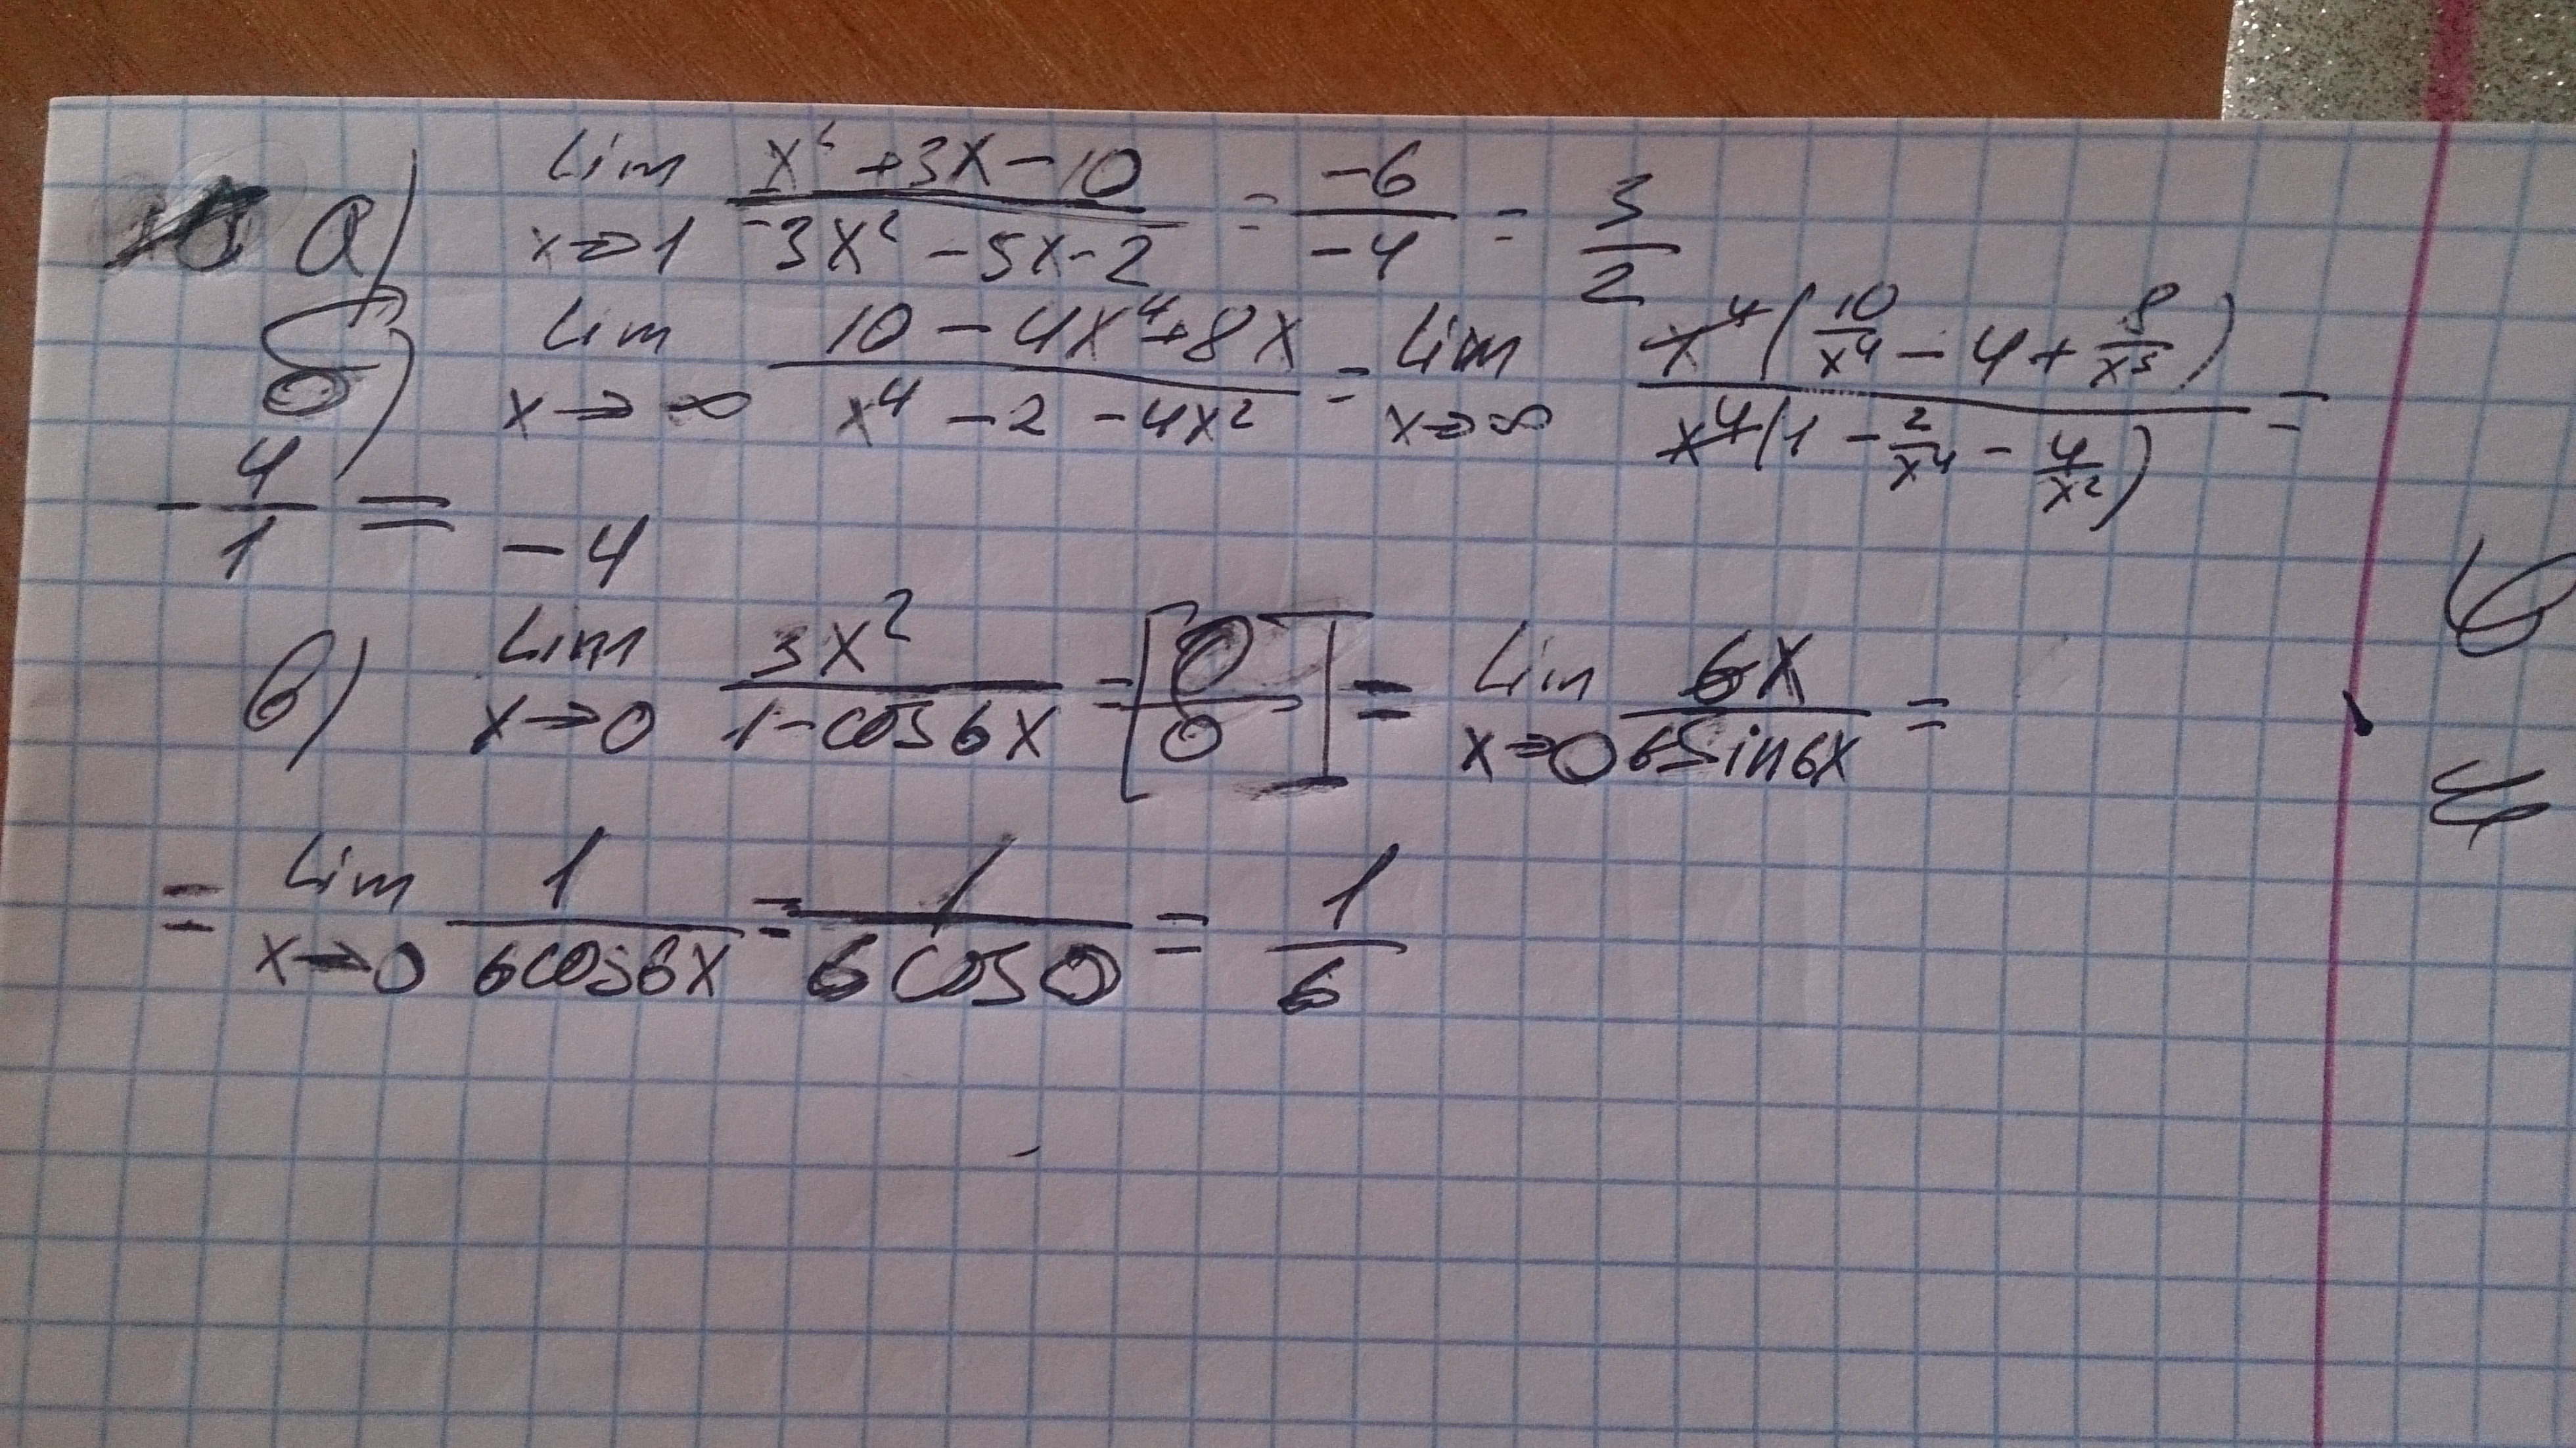 а) lim x→1 (x² + 3x - 10)/(3x² - 5x - 2) = -6/-4 = 3/2
б) lim x→∞ (10 - 4x⁴ + 8x)/(x⁴ - 2 - 4x²) = lim x→∞ x⁴(10/x⁴ - 4 + 8/x³)/x⁴(1 - 2/x⁴ - 4/x²) =
- 4/1 = -4
в) lim x→0 3x²/(1 - cos6x) = [0/0] = lim x→0 6x/6sin6x =
= lim x→0 1/6cos6x = 1/6cos0 = 1/6